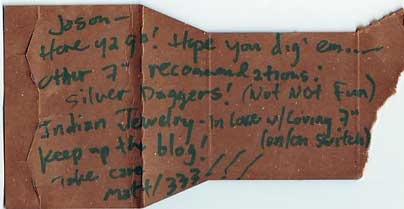 Jason—
Here ya go! Hope you dig 'em...—
other 7" recommendations:
Silver Daggers! (Not Not Fun)
Indian Jewelry - In Love w/ Loving 7"
(on/on switch)
keep up the blog!
Take care
Matt/333///